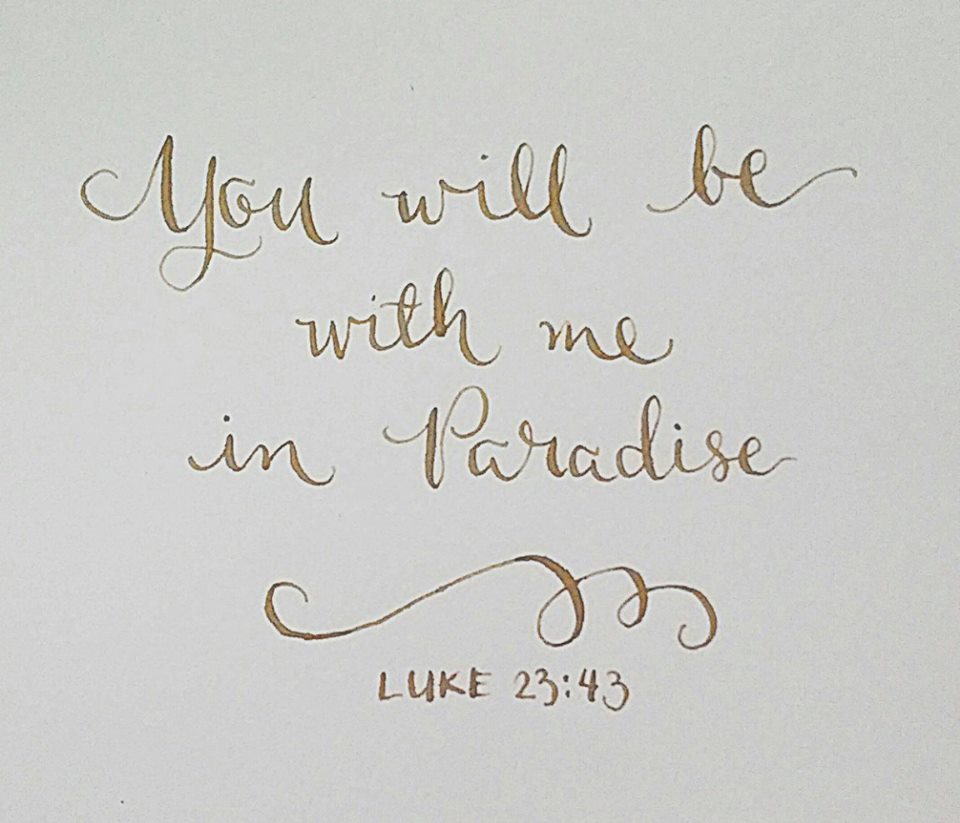 You will be
with me
in Paradise
LUKE 23:43